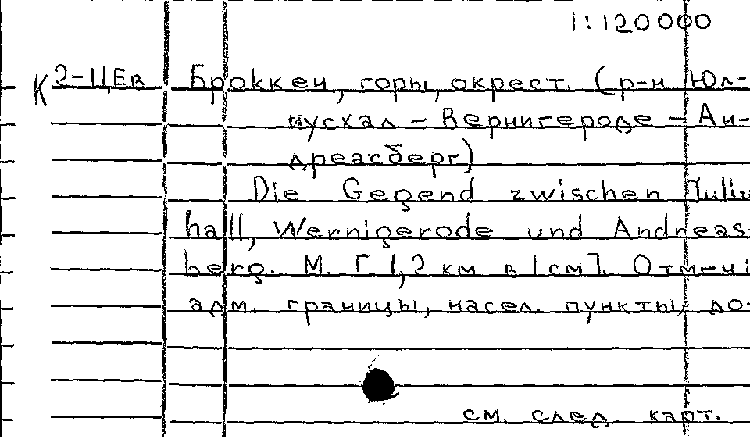 1:120000
К 2-ЦЕв Броккен, горы, окрест. (р-н Юл-
иусхал - Вернигероде - Ан-
дреасберг)
Die Gegend zwischen Juliu
hall, Wernigerode und Andreas-
berg. М. [1,2 км в 1 см]. Отмечі
адм. границы, насел. пункты, до-
см. след. карт.